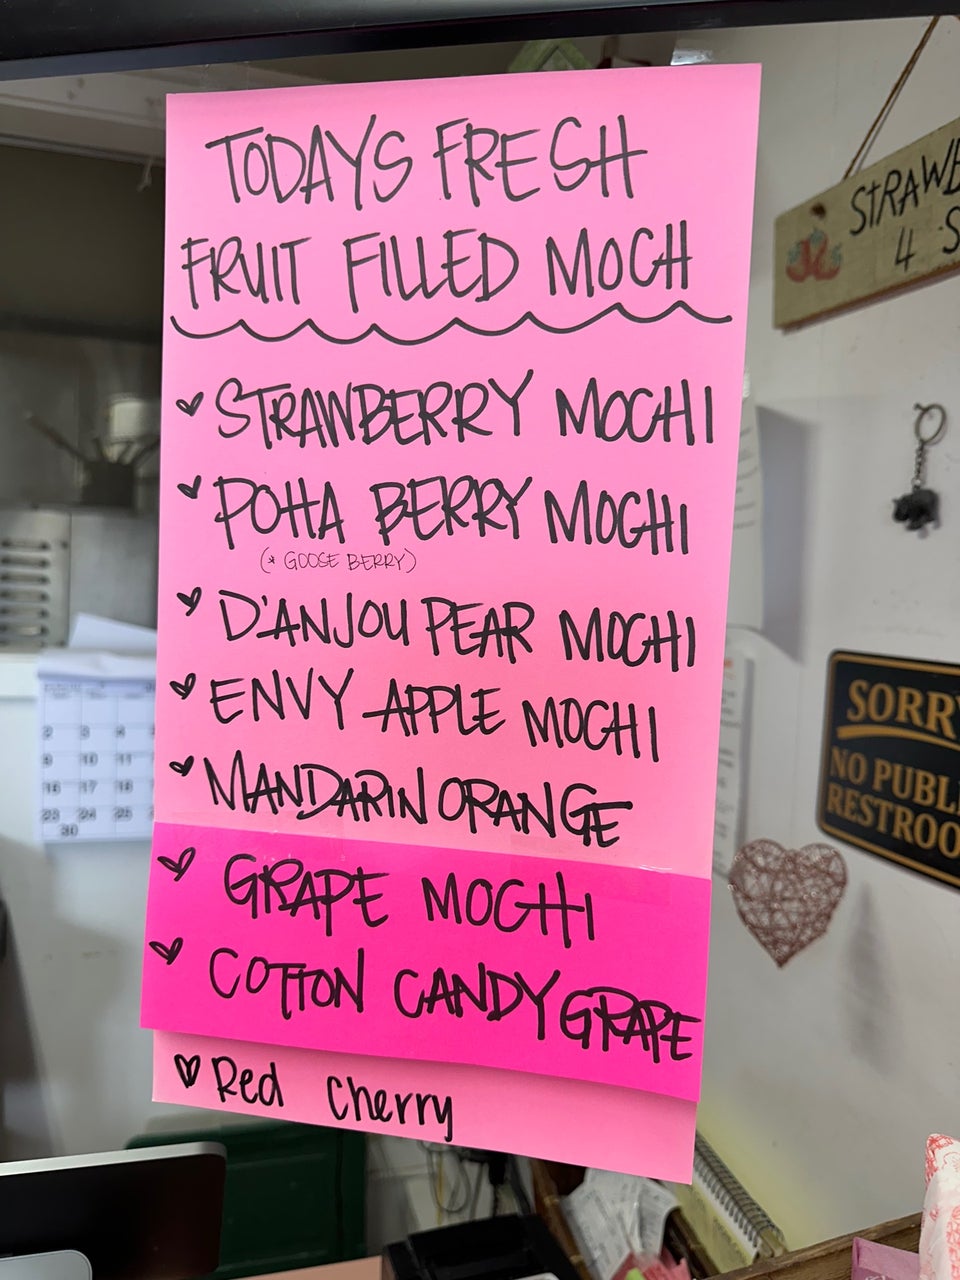 TODAYS FRESH
FRUIT FILLED MOCHI
STRAWBERRY MOCHI
POHA BERRY MOCHI
(* GOOSE BERRY)
D'ANJOU PEAR MOCHI
ENVY APPLE MOCHI
MANDARIN ORANGE
GRAPE MOCHI
COTTON CANDY GRAPE
Red Cherry
STRAWB
4 S
SORRY
NO PUBL
RESTROO
2 3 4
9 10 11
16 17 18
23 24 25
30